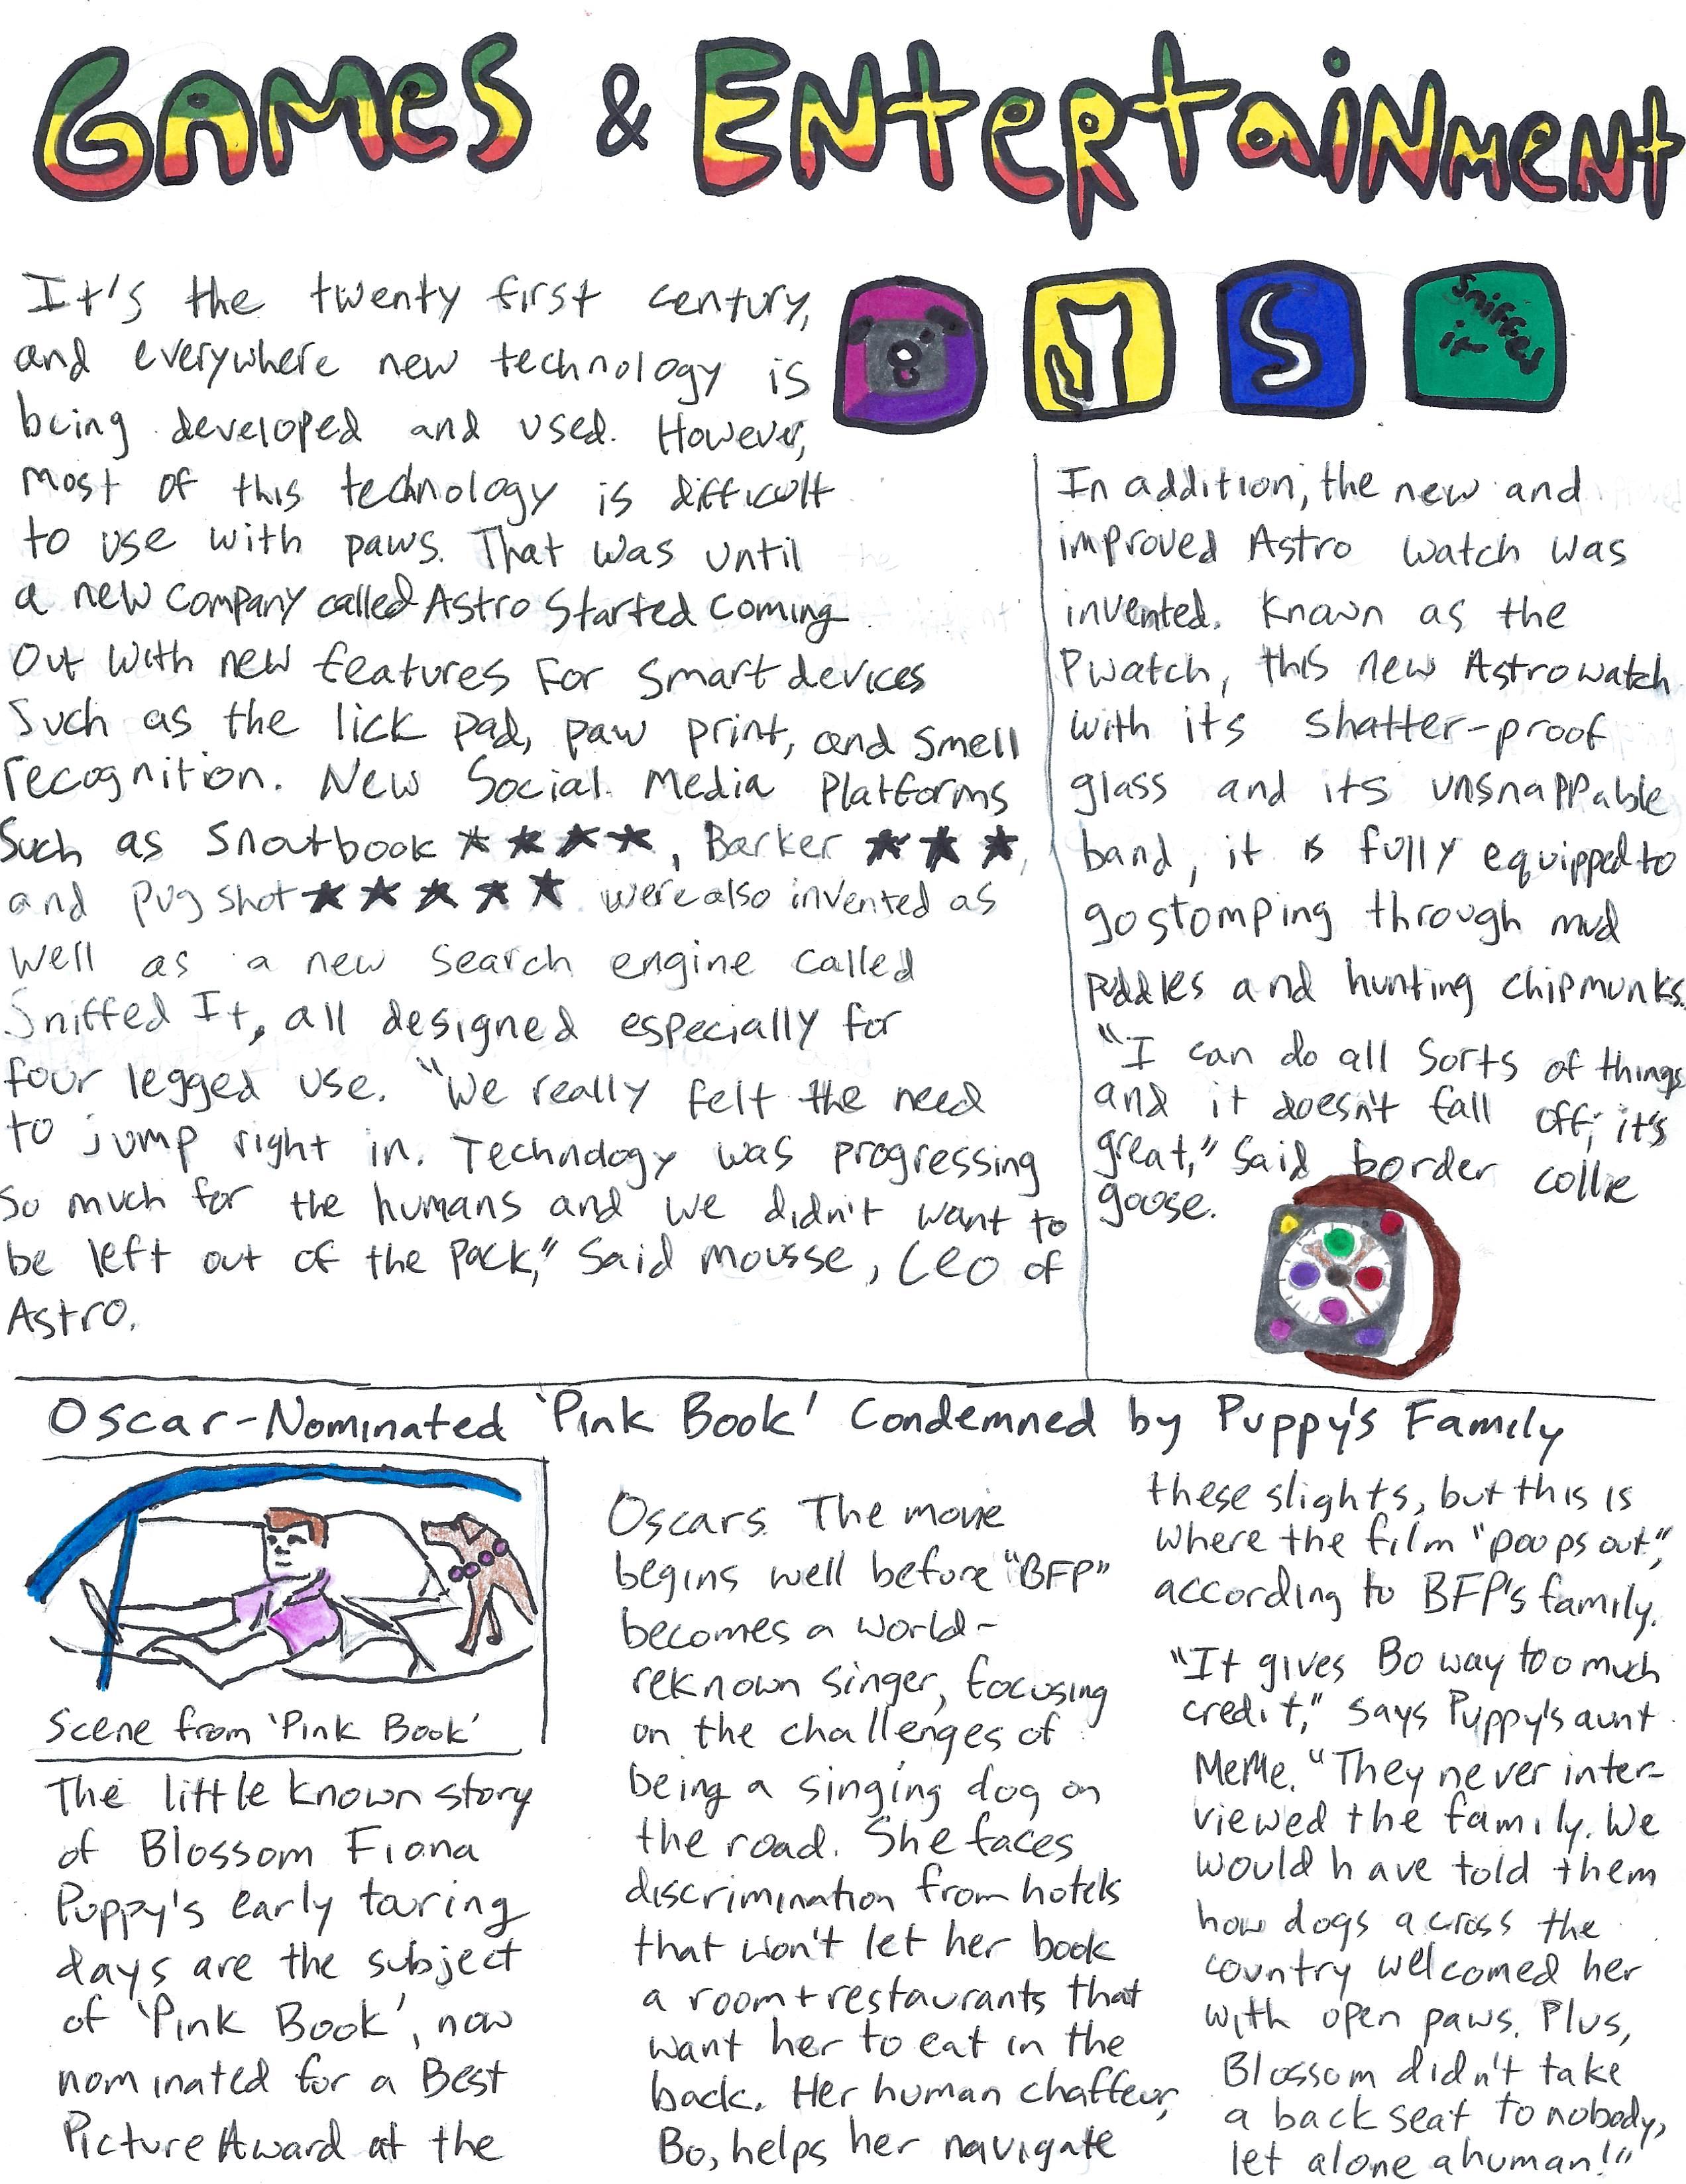 GAMES & ENtERtaiNmENt
Sniffed
it
S
It's the twenty first century,
and everywhere new technology is
being developed and used. However,
most of this technology is difficult
to use with paws. That was until
a new company called Astro started coming
out with new features for smart devices
such as the lick pad, paw print, and smell
recognition. New Social Media Platforms
such as Snoutbook ★★★★, Barker ★★★,
and pugshot ★★★★★ were also invented as
well as a new search engine called
Sniffed It, all designed especially for
four legged use. "We really felt the need
to jump right in. Technology was progressing
so much for the humans and we didn't want to
be left out of the pack," said mousse, CEO of
Astro.
In addition, the new and
improved Astro watch was
invented. Known as the
Pwatch, this new Astrowatch
with its shatter-proof
glass and its unsnappable
band, it is fully equipped to
go stomping through mud
puddles and hunting chipmunks.
"I can do all sorts of things
and it doesn't fall off; it's
great," said border collie
goose.
Oscar-Nominated 'Pink Book' Condemned by Puppy's Family
Scene from 'Pink Book'
The little known story
of Blossom Fiona
Puppy's early touring
days are the subject
of 'Pink Book', now
nominated for a Best
Picture Award at the
Oscars. The movie
begins well before "BFP"
becomes a world-
reknown singer, focusing
on the challenges of
being a singing dog on
the road. She faces
discrimination from hotels
that won't let her book
a room + restaurants that
want her to eat in the
back. Her human chaffeur,
Bo, helps her navigate
these slights, but this is
where the film "poops out",
according to BFP's family.
"It gives Bo way too much
credit," says Puppy's aunt
MeMe. "They never inter-
viewed the family. We
would have told them
how dogs across the
country welcomed her
with open paws. Plus,
Blossom didn't take
a back seat to nobody,
let alone a human!"